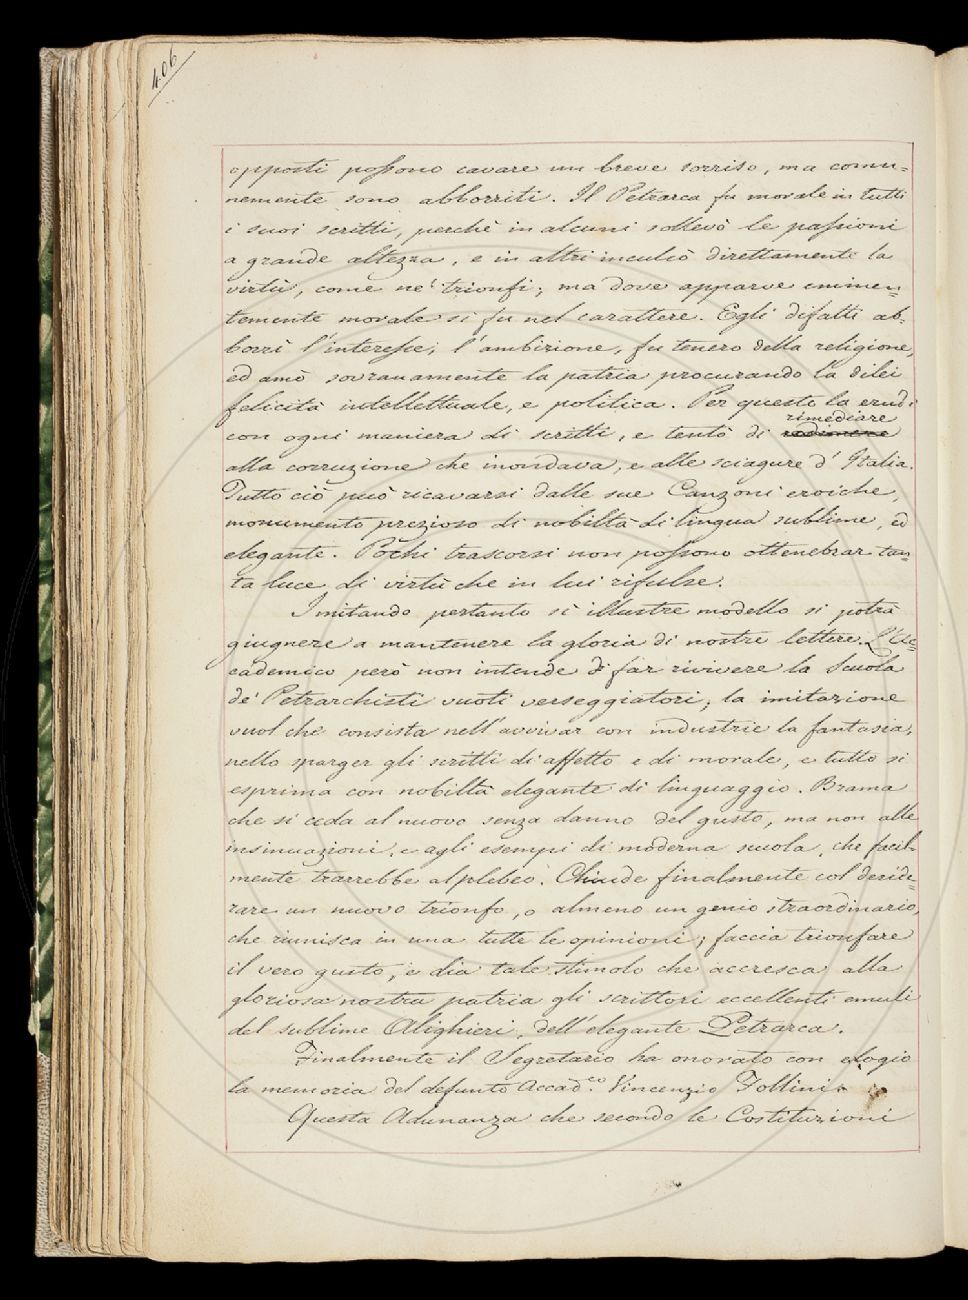 406
opposti possono cavare un breve sorriso, ma comu=
nemente sono abborriti. Il Petrarca fu morale in tutti
i suoi scritti, perchè in alcuni sollevò le passioni
a grande altezza, e in altri inculcò direttamente la
virtù, come ne' trionfi; ma dove apparve eminen=
temente morale si fu nel carattere. Egli difatti ab=
borrì l'interesse, l'ambizione, fu tenero della religione,
ed amò sovranamente la patria procurando la dilei
felicità intellettuale, e politica. Per questo la erudì
rimediare
con ogni maniera di scritti, e tentò di
alla corruzione che inondava, e alle sciagure d'Italia.
Tutto ciò può ricavarsi dalle sue Canzoni eroiche,
monumento prezioso di nobiltà di lingua sublime, ed
elegante. Pochi trascorsi non possono ottenebrar tan=
ta luce di virtù che in lui rifulse.
Imitando pertanto sì illustre modello si potrà
giugnere a mantenere la gloria di nostre lettere. L'Ac=
cademico però non intende di far rivivere la Scuola
de' Petrarchisti vuoti verseggiatori; la imitazione
vuol che consista nell'avvivar con industrie la fantasia,
nello sparger gli scritti di affetto e di morale, e tutto si
esprima con nobiltà elegante di linguaggio. Brama
che si ceda al nuovo senza danno del gusto, ma non alle
insinuazioni, e agli esempi di moderna scuola, che facil=
mente trarrebbe al plebeo. Chiude finalmente col deside=
rare un nuovo trionfo, o almeno un genio straordinario,
che riunisca in una tutte le opinioni; faccia trionfare
il vero gusto, e dia tale stimolo che accresca alla
gloriosa nostra patria gli scrittori eccellenti emuli
del sublime Alighieri, dell'elegante Petrarca.
Finalmente il Segretario ha onorato con elogio
la memoria del defunto Accad.co Vincenzio Follini.
Questa Adunanza che secondo le Costituzioni